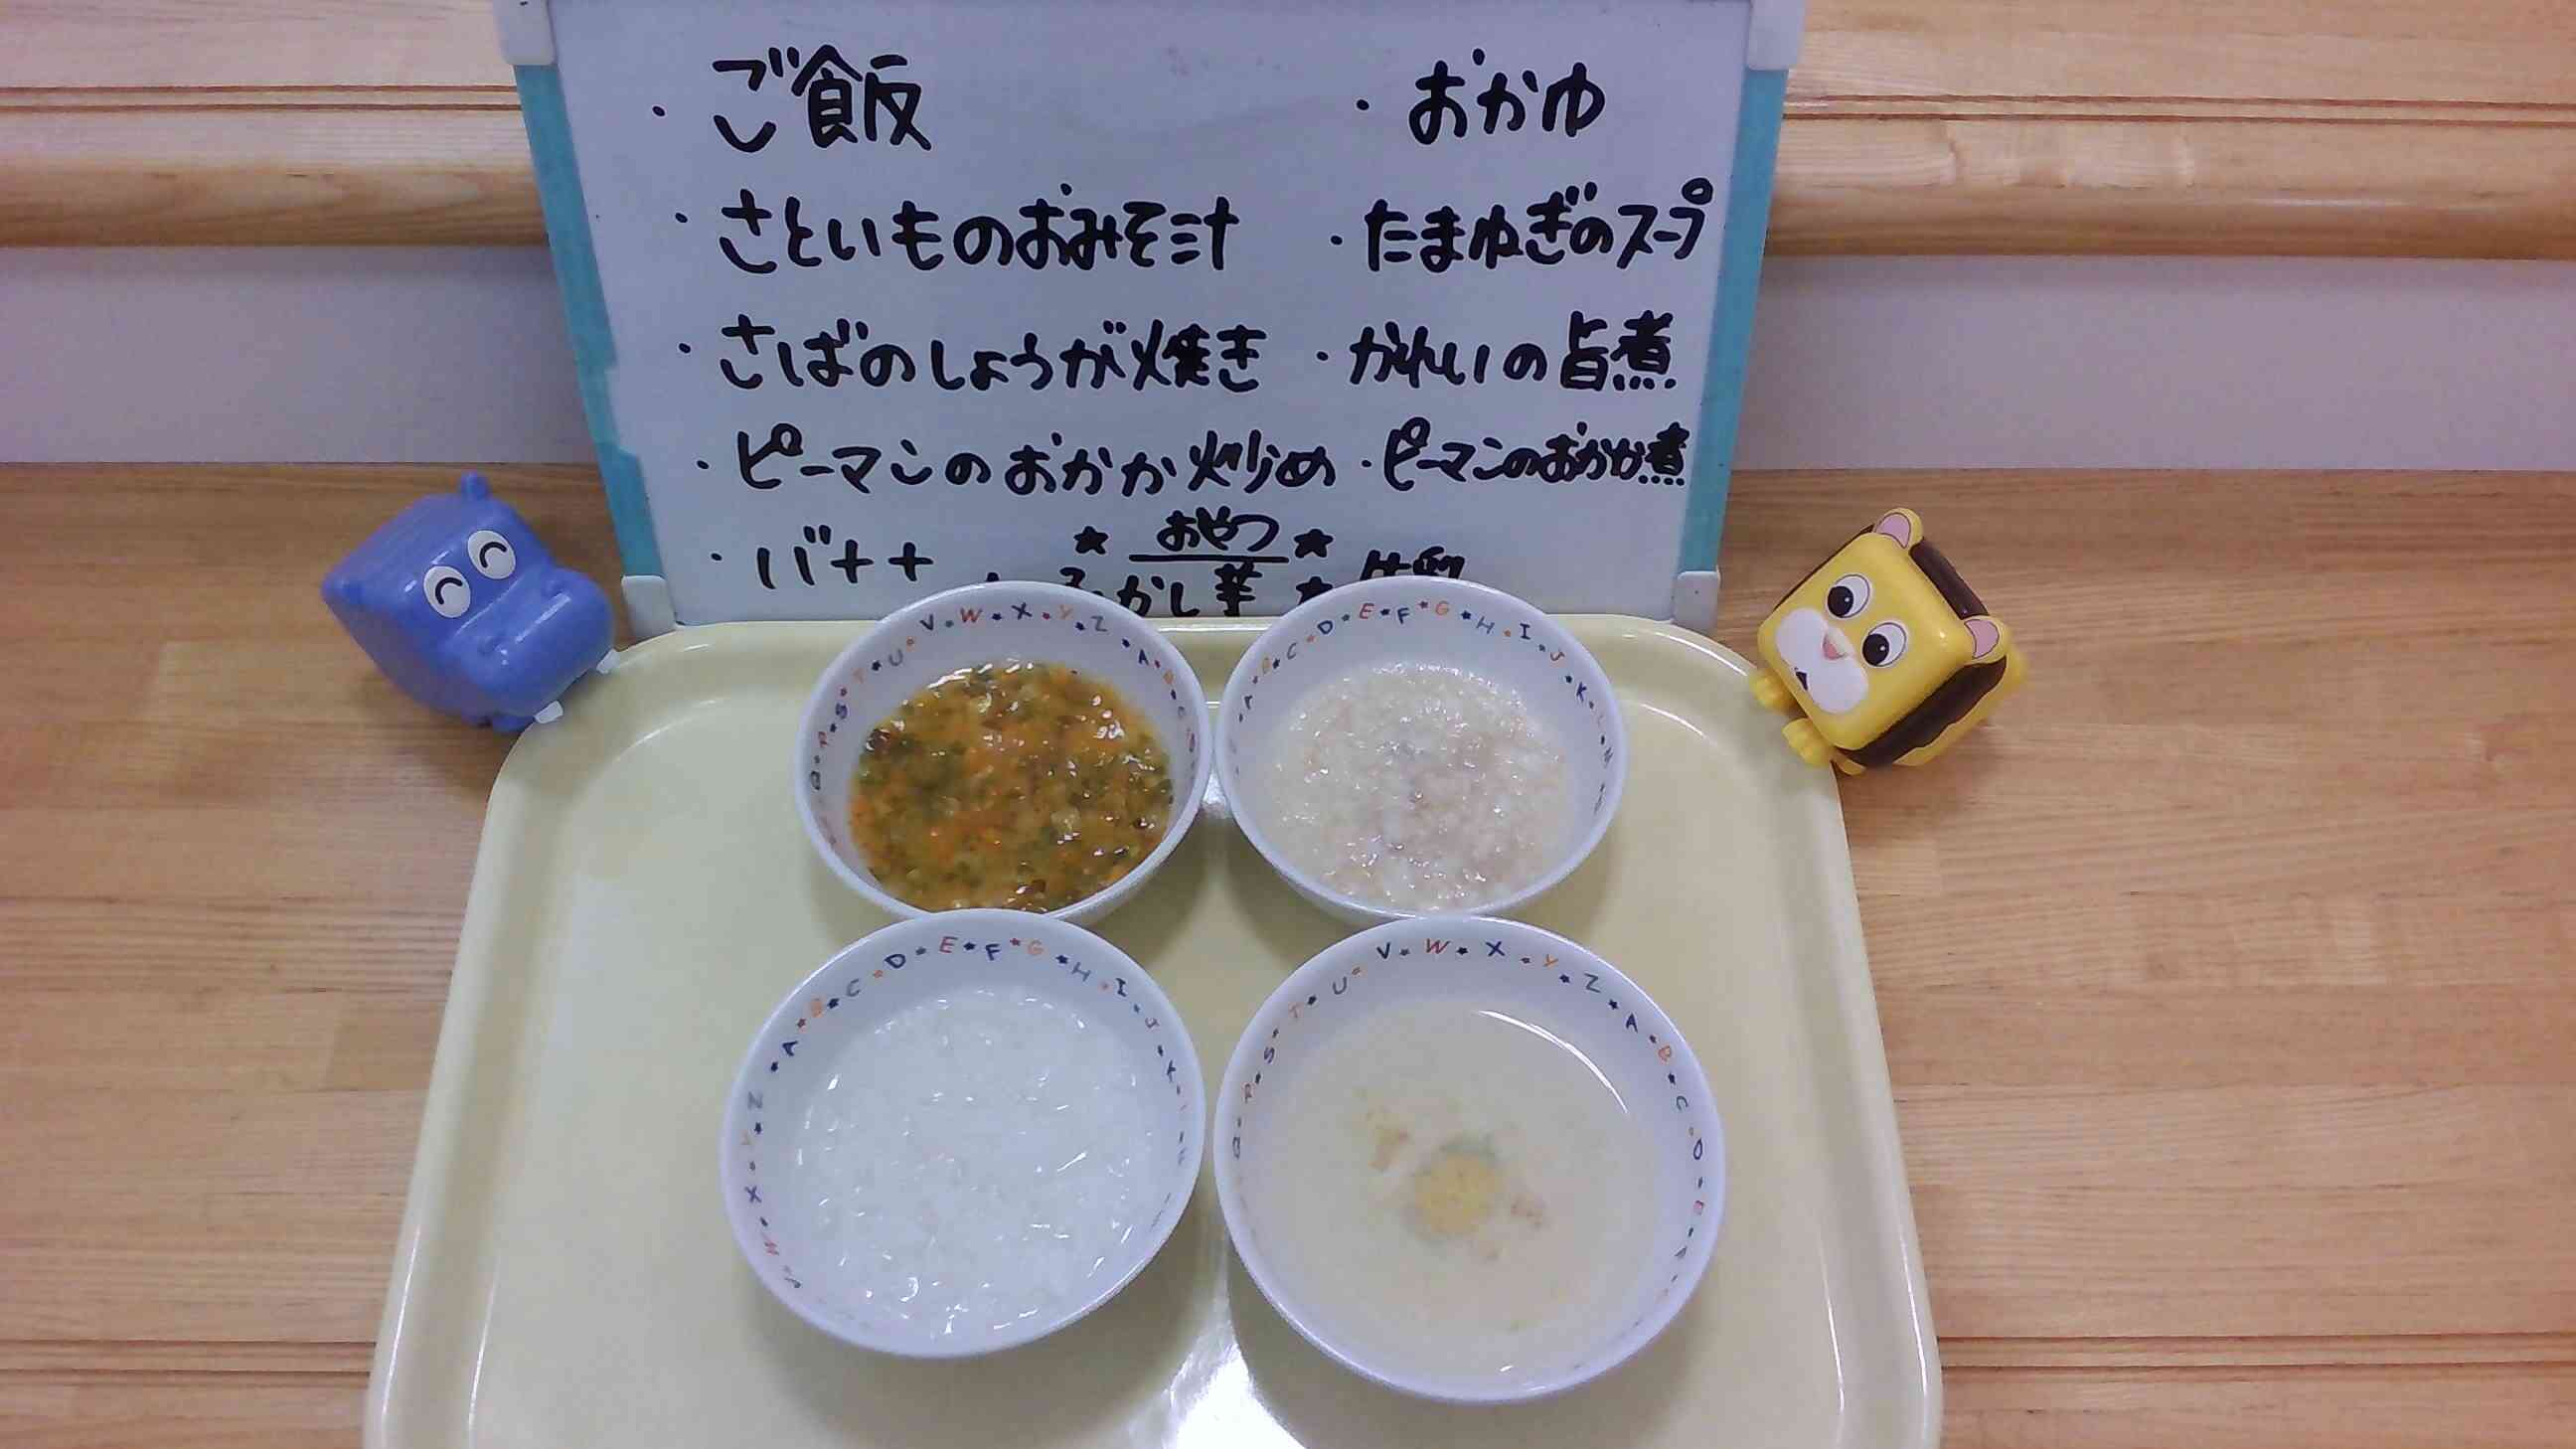 ・ご飯
・さといものおみそ汁
・さばのしょうが焼き
・ピーマンのおかか炒め
・バナナ
・おかゆ
・たまねぎのスープ
・かれいの旨煮
・ピーマンのおかか煮
★おやつ★
ふかし芋
牛乳
V W X Y Z A B C
Q P S T U
A B C D E F G H I J K L M N
X Y Z A B C D E F G H I J K L
Q R S T U V W X Y Z A B C D E F